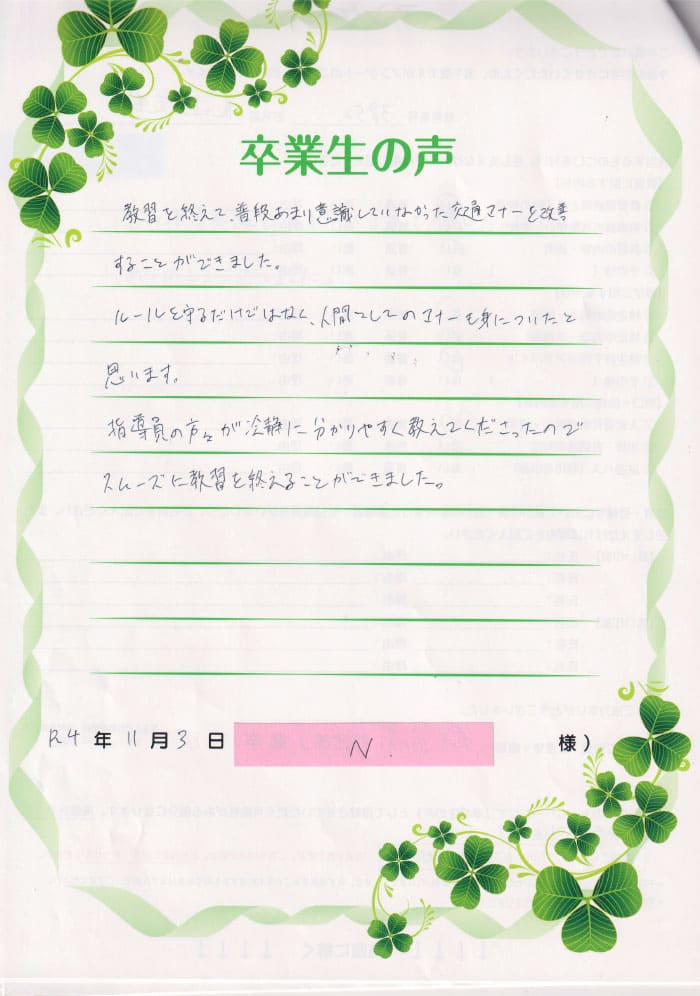 卒業生の声
教習を終えて、普段あまり意識していなかった交通マナーを改善
することができました。
ルールを守るだけではなく、人間としてのマナーも身についたと
思います。
指導員の方々が冷静に分かりやすく教えてくださったので
スムーズに教習を終えることができました。
R4年11月3日 N. 様)